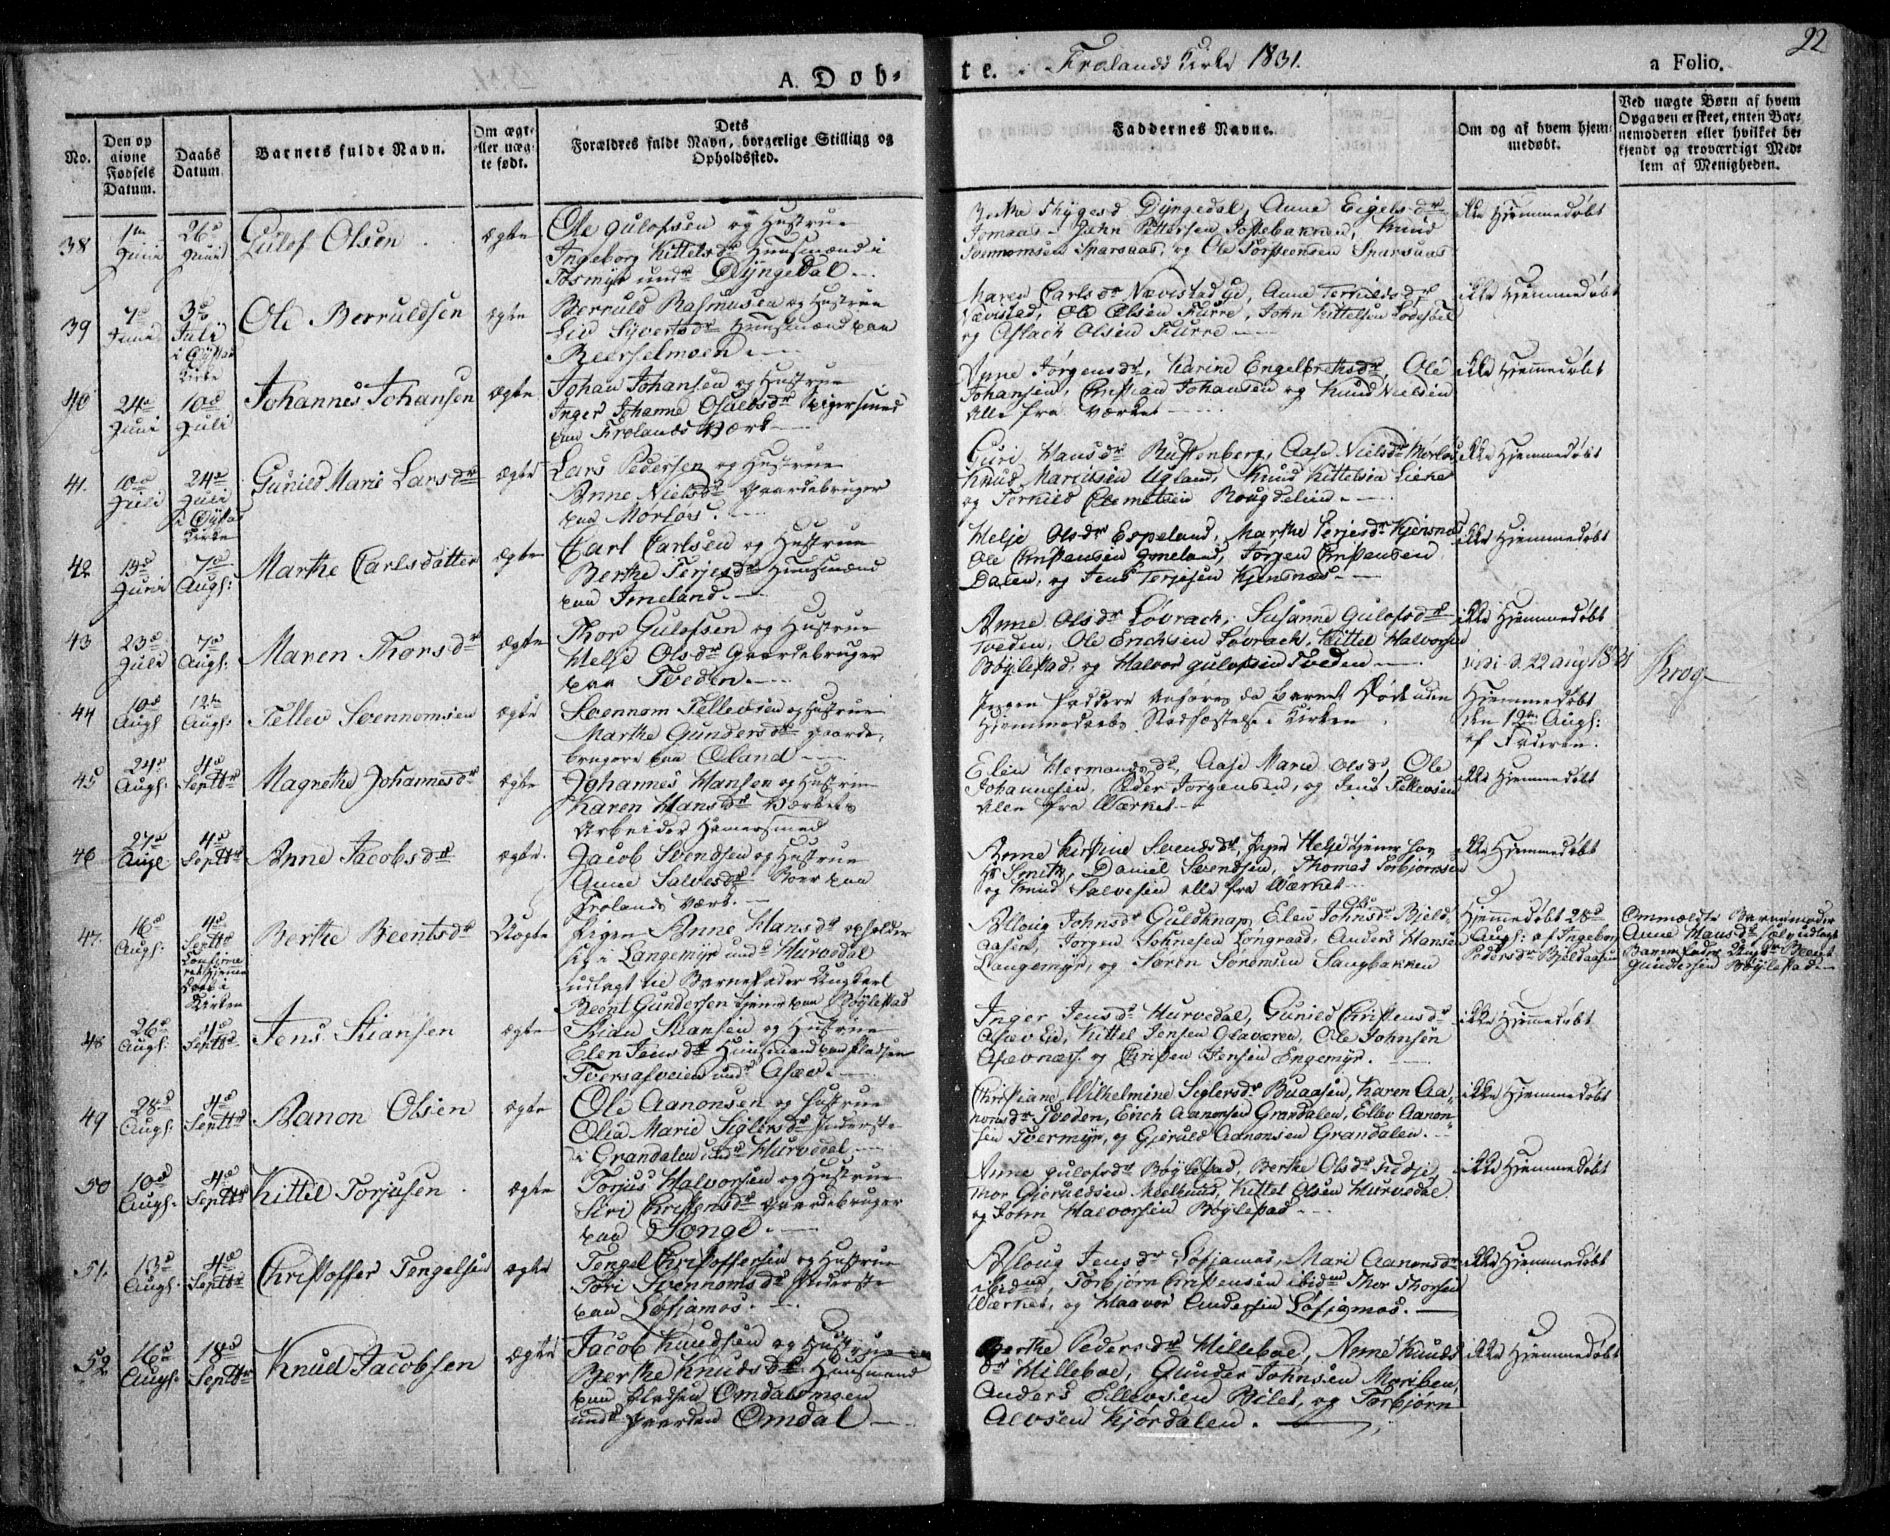 22
A. Døb-
te. i Frolands Kirke 1831.
a Folio.
No.
Den op
givne
Fødsels
Datum.
Daabs
Datum
Barnets fulde Navn.
Om ægte
eller uæg-
te født.
Dets
Forældres fulde Navn, borgerlige Stilling og
Opholdssted.
Faddernes Navne.
Om og af hvem hjem
medøbt.
Ved uægte Børn af hvem
Opgaven er skeet, enten Bar-
nemoderen eller hvilket be-
kjendt og troværdigt Med-
lem af Menigheden.
38
1ste Juni
26d Juni
Gulof Olsen
ægte
Ole Gulofsen og Hustrue
Ingeborg Kittelsdr Huusmænd i
Tosmyr undr Dyngedal
Dyngedal, Anne Eigelsdr
Jomaas, John Pettersen Tostebakken, Knud
Svennomsen Sparsaas, og Ole Torstensen Sparsaas
ikke Hjemmedøbt
39
7d Juni
3d
Juli
i Øyestad
Kirke
Ole Berruldsen
ægte
Berruld Rasmusen og Hustrue
Liv Syvertsdr Huusmænd paa
Beerselmoen
Maren Carlsdr Nævestad, Anne Terkildsdr
Nævistad, Ole Olsen Furre, John Kittelsen
og Aslach Olsen Furre
ikke Hjemmedøbt
40
24d
Juni
10d
Juli
Johannes Johansen
ægte
Johan Johansen og Hustrue
Inger Johanne Osuldsdr Spigersmed
paa Frolands Værk
Anne Jørgensdr, Karine Engelbrethsdr, Ole
Johansen, Christian Johansen og Knud Nielsen
alle fra Værket
ikke Hjemmedøbt
41.
10d
Juli
24d
Juli
i Øyestad
Kirke
Gunild Marie Larsdr
ægte
Lars Pedersen og Hustrue
Anne Nielsdr Gaardebruger
paa Morløs.
Guri Hansdr Buttenberg, Aase Nielsdr Mørløs
Knud Maritsen Ugland, Knud Kittelsen Liene
og Terkild Clemetsen Bougdelien
ikke Hjemmedøbt
42
14d
Juni
7d
Augh:
Marthe Carlsdatter
ægte
Carl Carlsen og Hustrue
Berthe Terjesdr Huusmænd
paa Jmeland.
Helje Olsdr Espeland, Marthe Terjesdr Kjensnæs
Ole Christensen Jmeland, Jørgen Christensen
Dalen, og Jens Terjesen Kjensnæs.
ikke Hjemmedøbt
43
23d
Juli
7d
Augh:
Maren Thorsdr
ægte
Thor Gulofsen og Hustrue
Helje Olsdr Gaardebruger
paa Tveden.
Anne Olsdr Løvrach, Susanne Gulofsdr
Tveden, Ole Erichsen Løvrach, Kittel Halvorsen
Bøylestad, og Halvor Gulofsen Tveden
ikke Hjemmedøbt
vidi d. 22 aug 1831
Krog
44
10d
Augh
12te
Augh:
Tellev Svennomsen
ægte
Svennom Tellevsen og Hustrue
Marthe Gundersdr Gaarde-
brugere paa Oland
Ingen Faddere anføres da Barnet Døde uden
Hjemmedaabs Stadfæstelse i Kirken
Hjemmedøbt
den 12te Augh:
af Faderen.
45
24d
Augh:
4d
Septbr
Magrethe Johannesdr
ægte
Johannes Hansen og Hustrue
Karen Hansdr Værkets
Arbeider Hamersmed
Elen Hermansdr, Aase Marie Olsdr, Ole
Johannesen, Peder Jørgensen, og Jens Tellevsen
alle fra Værket
ikke Hjemmedøbt
46
27d
Auge
4d
Septbr
Anne Jacobsdr
ægte.
Jacob Svendsen og Hustrue
Anne Salvesdr Boer paa
Frolands Værk.
Anne Kirstine Svendsdr, Pigen Helje tjener hos
Hr Smith, Daniel Svendsen, Thomas Torbjørnsen
og Knud Salvesen alle fra Værket
ikke Hjemmedøbt
47.
16d
Augh:
4d
Septbr
Confirme
ret Hjemme
Døbt i
Kirken
Berthe Beentsdr
Uægte
Pigen Anne Hansdr opholder
sig i Langemyr undr Hurvedal
udlagt til Barnefader Ungkarl
Beent Gundersen tjener paa Bøylestad
Asloug Johnsdr Guldknap, Elen Johnsdr Bjeld-
aasen, Jørgen Johnesen Longraad, Anders Hansen
Langemyr, og Søren Sørensen Langbakken
Hjemmedøbt 28d
Augh: af Ingeborg
Pedersdr Bjeldaasen
Ommældte Barnemoder
Anne Hansdr selv udlagt
Barnefader Ungkr Beent
Gundersen Bøylestad
48
26d
Augh:
4d
Septbr
Jens Stiansen
ægte
Stian Stiansen og Hustrue
Elen Jensdr Huusmænd paa Pladsen
Tversafveien undr Asæv.
Inger Jensdr Hurvedal, Gunild Christensdr
Asævlid, Kittel Jensen Olaveren, Ole Johnsen
Asævnæs og Christen Jensen Engemyr.
ikke Hjemmedøbt
49
28d
Augh:
4d
Septbr
Aanon Olsen
ægte
Ole Aanonsen og Hustrue
Olea Marie Siglersdr Inderste
i Grandalen undr Hurvedal
Christiane Wilhelmine Seglersdr Buaasen, Karen Aa-
nonsdr Tveden, Erich Aanonsen Grandalen, Ellev Aanon-
sen Tvermyr, og Gjeruld Aanonsen Grandalen.
ikke Hjemmedøbt
50
10d
Augh.
4d
Septbr
Kittel Torjusen
ægte
Torjus Halvorsen og Hustrue
Siri Christensdr Gaardebruger
paa Songe.
Anne Gulofsdr Bøylestad, Berthe Olsdr Tidsje,
Thor Gjeruldsen Mølhuus, Kittel Olsen Hurvedal
og John Halvorsen Bøylestad
ikke Hjemmedøbt
51.
13d
Augh.
4d
Septbr
Christoffer Tengelsen
ægte
Tengel Christoffersen og Hustrue
Tori Svennomsdr Inderste
paa Løfsjamos.
Asloug Jensdr Løfsjamos, Mari Aanonsdr
ibidm, Torbjørn Christensen ibidm Thor Thorsen
Værket, og Haavor Andersen Løfsjamos.
ikke Hjemmedøbt
52
16d
Augh.
18d
Septbr
Knud Jacobsen
ægte
Jacob Knudsen og Hustrue
Berthe Knudsdr Huusmænd
paa Pladsen Omdalsmoen
undr Gaarden Omdal
Berthe Pedersdr Hilleboe, Anne Knuds
dr Hilleboe, Gunder Johnsen Moripen,
Anders Ellevsen Bilet, og Torbjørn
Alvsen Kjørdalen.
ikke Hjemmedøbt